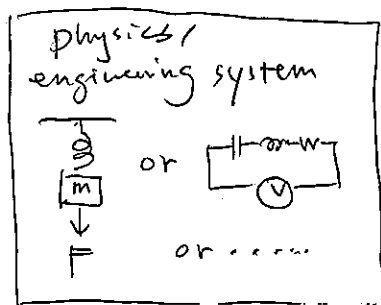 physics/
engineering system
m or V
F or .....